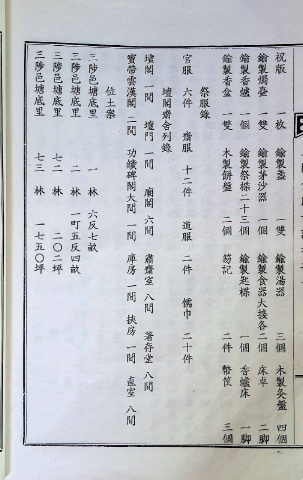 祝版 一枚 鍮製盞 一雙 鍮製湯器 三個 木製炙盤 四個
鍮製燭臺 一雙 鍮製茅沙器 一個 鍮製食器大接各二個 床卓 二脚
鍮製香爐 一個 鍮製祭楪二十三個 鍮製匙楪 一個 香爐床 一脚
鍮製香盒 一雙 木製餠盤 二個 笏記 二件 幣筐 三個
祭服錄
官服 六件 齋服 十二件 道服 二件 儒巾 二十件
壇閣齋舍列錄
壇閣 一間 壇門 一間 廟閣 六間 肅齋室 八間 著存堂 八間
寶帶雲漢閣 二間 功績碑閣大間 一間 庫房 一間 挾房 一間 直室 八間
位土案
三陟邑塘底里 一 林 六反七畝
三陟邑塘底里 二 林 一町五反四畝
三陟邑塘底里 七二 林 二〇二坪
三陟邑塘底里 七三 林 一七五〇坪